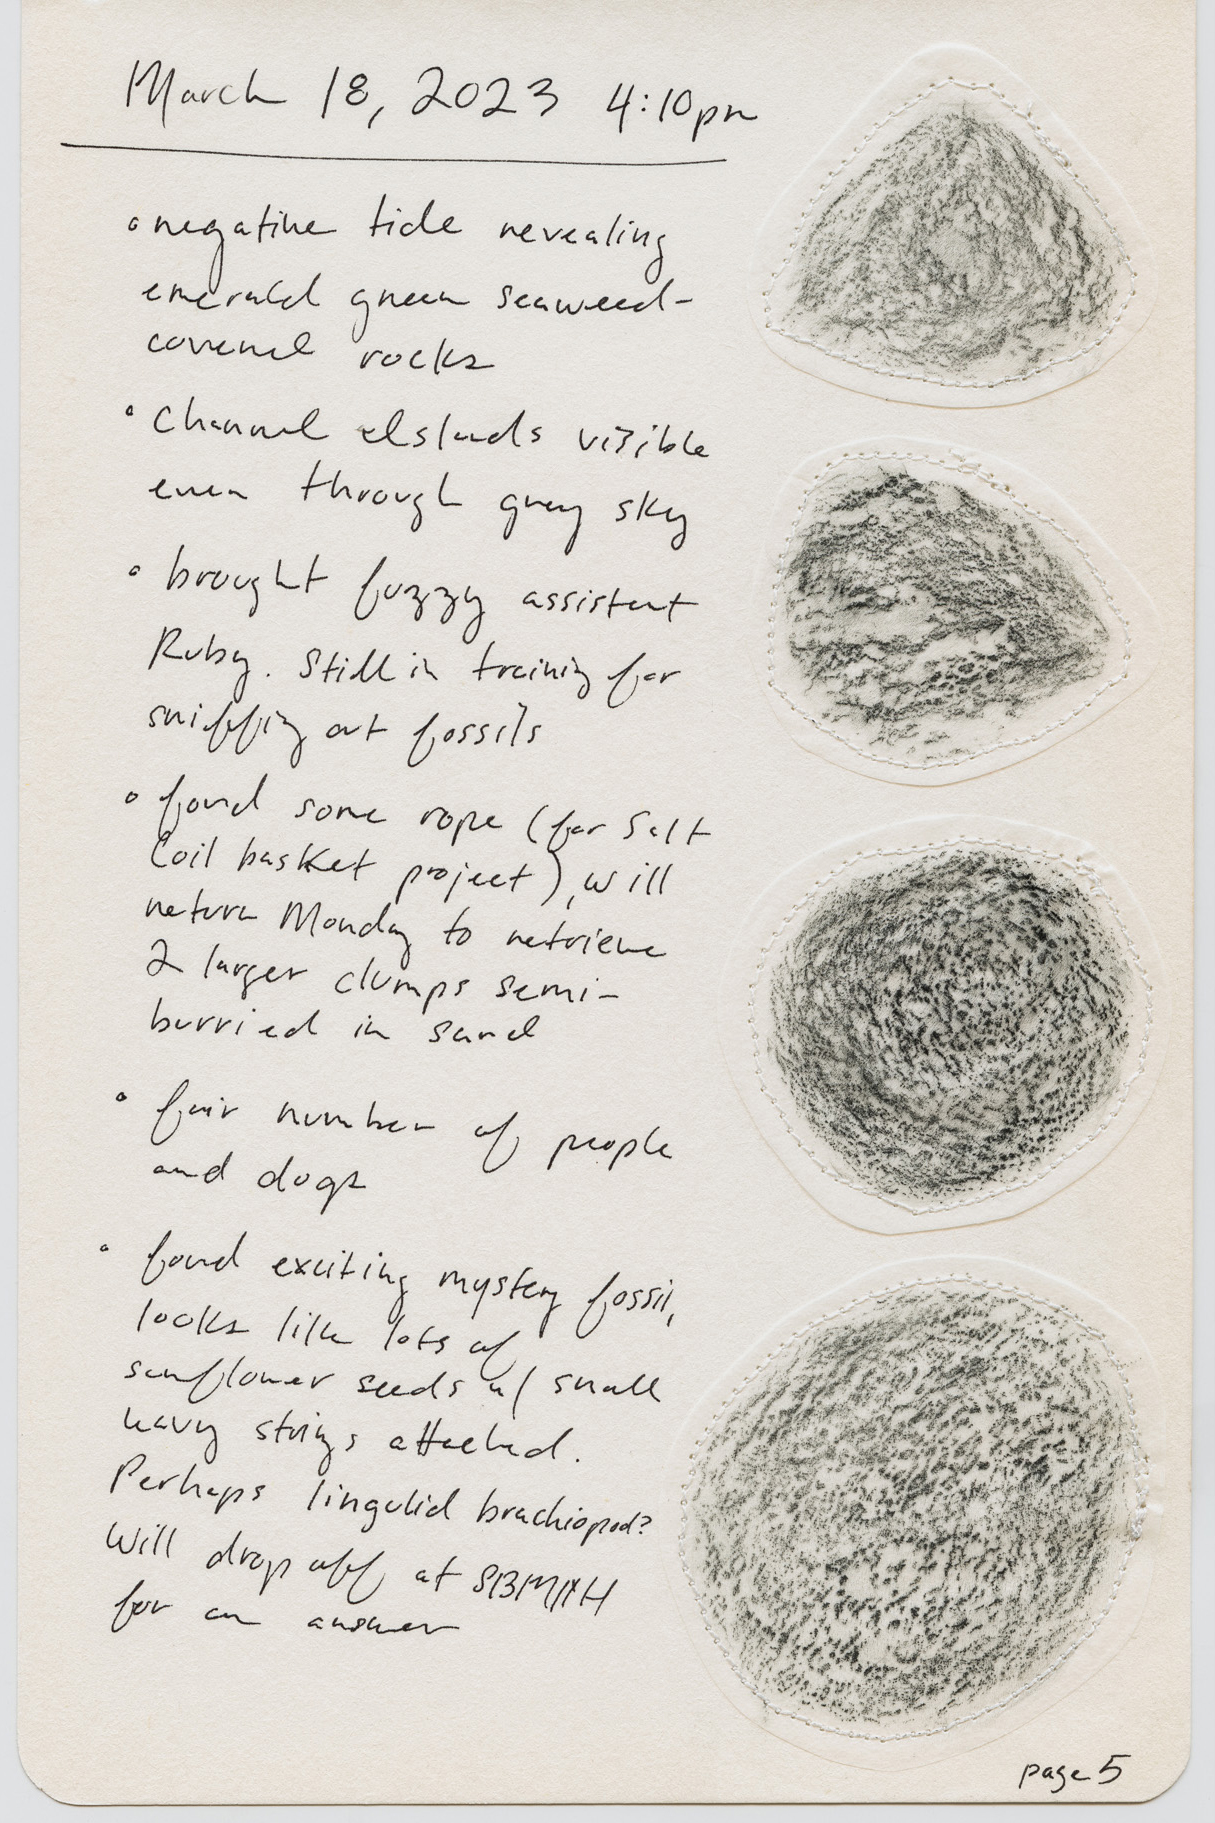 March 18, 2023 4:10pm
• negative tide revealing
emerald green seaweed-
covered rocks
• Channel Islands visible
even through grey sky
• brought fuzzy assistant
Ruby. Still in training for
sniffing out fossils
• found some rope (for Salt
Coil basket project), will
return Monday to retrieve
2 larger clumps semi-
burried in sand
• fair number of people
and dogs
• found exciting mystery fossil,
looks like lots of
sunflower seeds w/ small
wavy strings attached.
Perhaps lingulid brachiopod?
Will drop off at SBMNH
for an answer
page 5